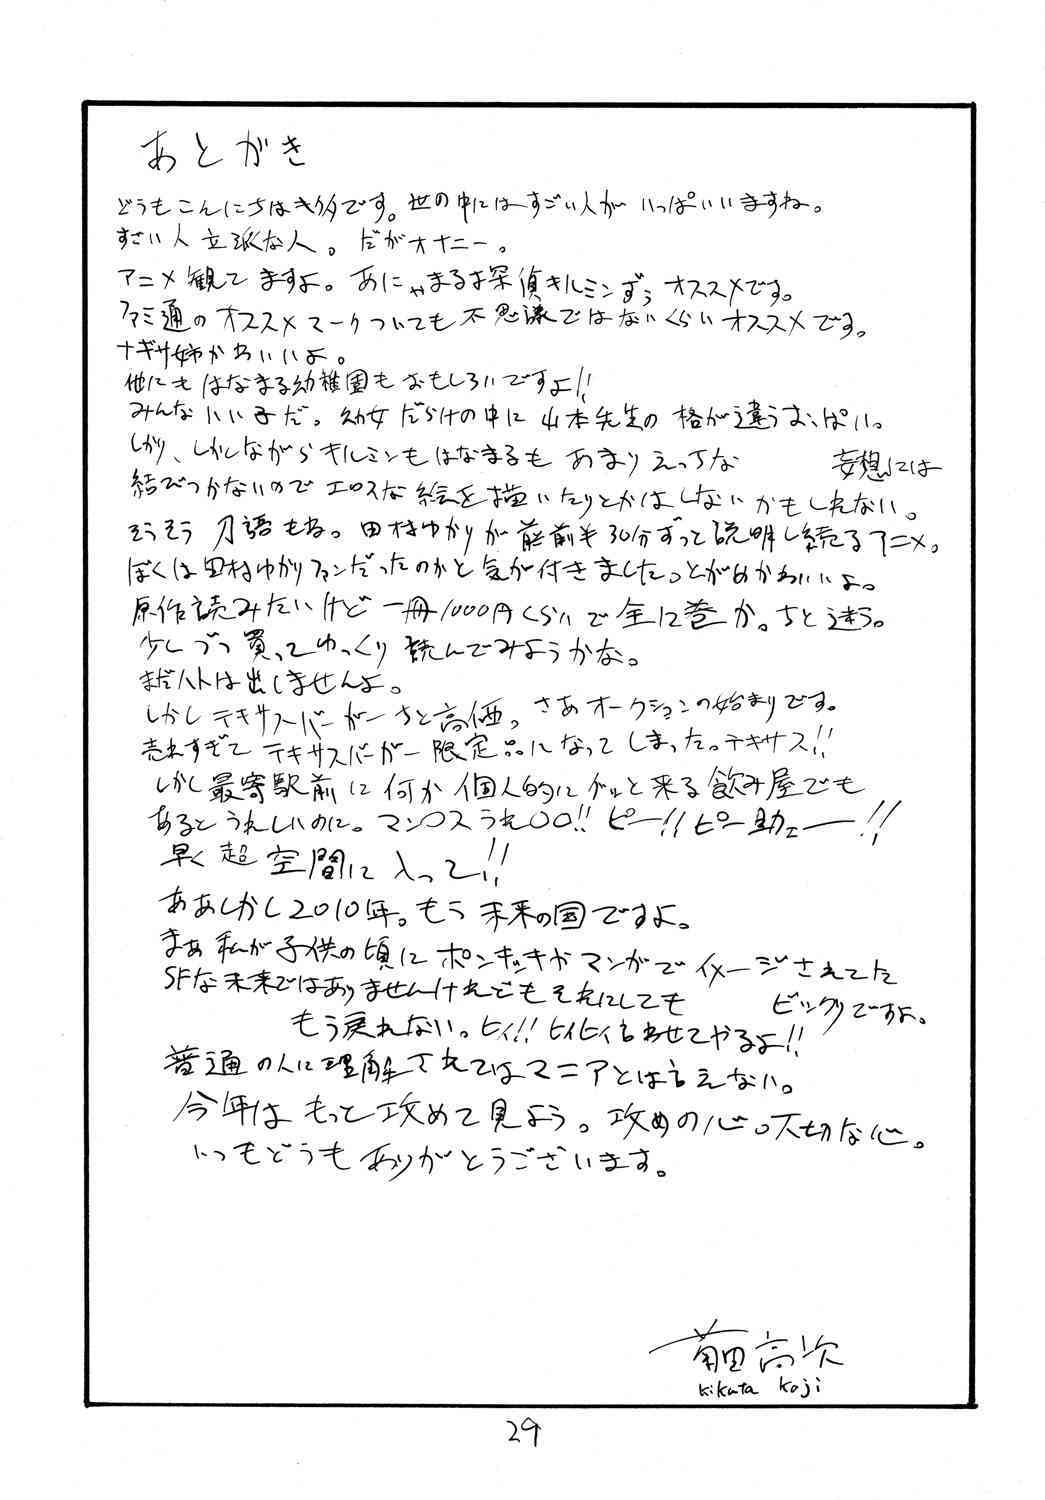 あとがき
どうもこんにちはキクタです。世の中にはすごい人がいっぱいいますね。
すごい人立派な人。だがオナニー。
アニメ観てますよ。あにゃまる探偵キルミンずぅオススメです。
ファミ通のオススメマークついても不思議ではないくらいオススメです。
ナギサ姉かわいいよ。
他にもはなまる幼稚園もおもしろいですよ!!
みんないい子だ。幼女だらけの中に山本先生の格が違うおっぱい。
しかし、しかしながらキルミンもはなまるもあまりえっちな妄想には
結びつかないのでエロスな絵を描いたりとかはしないかもしれない。
そうそう刀語もね。田村ゆかりが前半30分ずっと説明し続るアニメ。
ぼくは田村ゆかりファンだったのかと気が付きました。とがめかわいいよ。
原作読みたいけど一冊1000円くらいで全12巻か。ちと迷う。
少しづつ買ってゆっくり読んでみようかな。
まだハトは出しませんよ。
しかしテキサスバーガーちと高価。さあオークションの始まりです。
売れすぎてテキサスバーガー限定品になってしまった。テキサス!!
しかし最寄駅前に何か個人的にグッと来る飲み屋でも
あるとうれしいのに。マン〇スうれ〇〇!!ピー!!ピー助ェー!!
早く超空間に入って!!
ああしかし2010年。もう未来の国ですよ。
まぁ私が子供の頃にポンキッキかマンガでイメージされてた
SFな未来ではありませんけれどもそれにしてもビックリですよ。
もう戻れない。ヒィ!!ヒィヒィ言わせてやるよ!!
普通の人に理解されてはマニアとは言えない。
今年はもっと攻めて見よう。攻めの心。大切な心。
いつもどうもありがとうございます。
菊田高次
Kikuta Koji
29